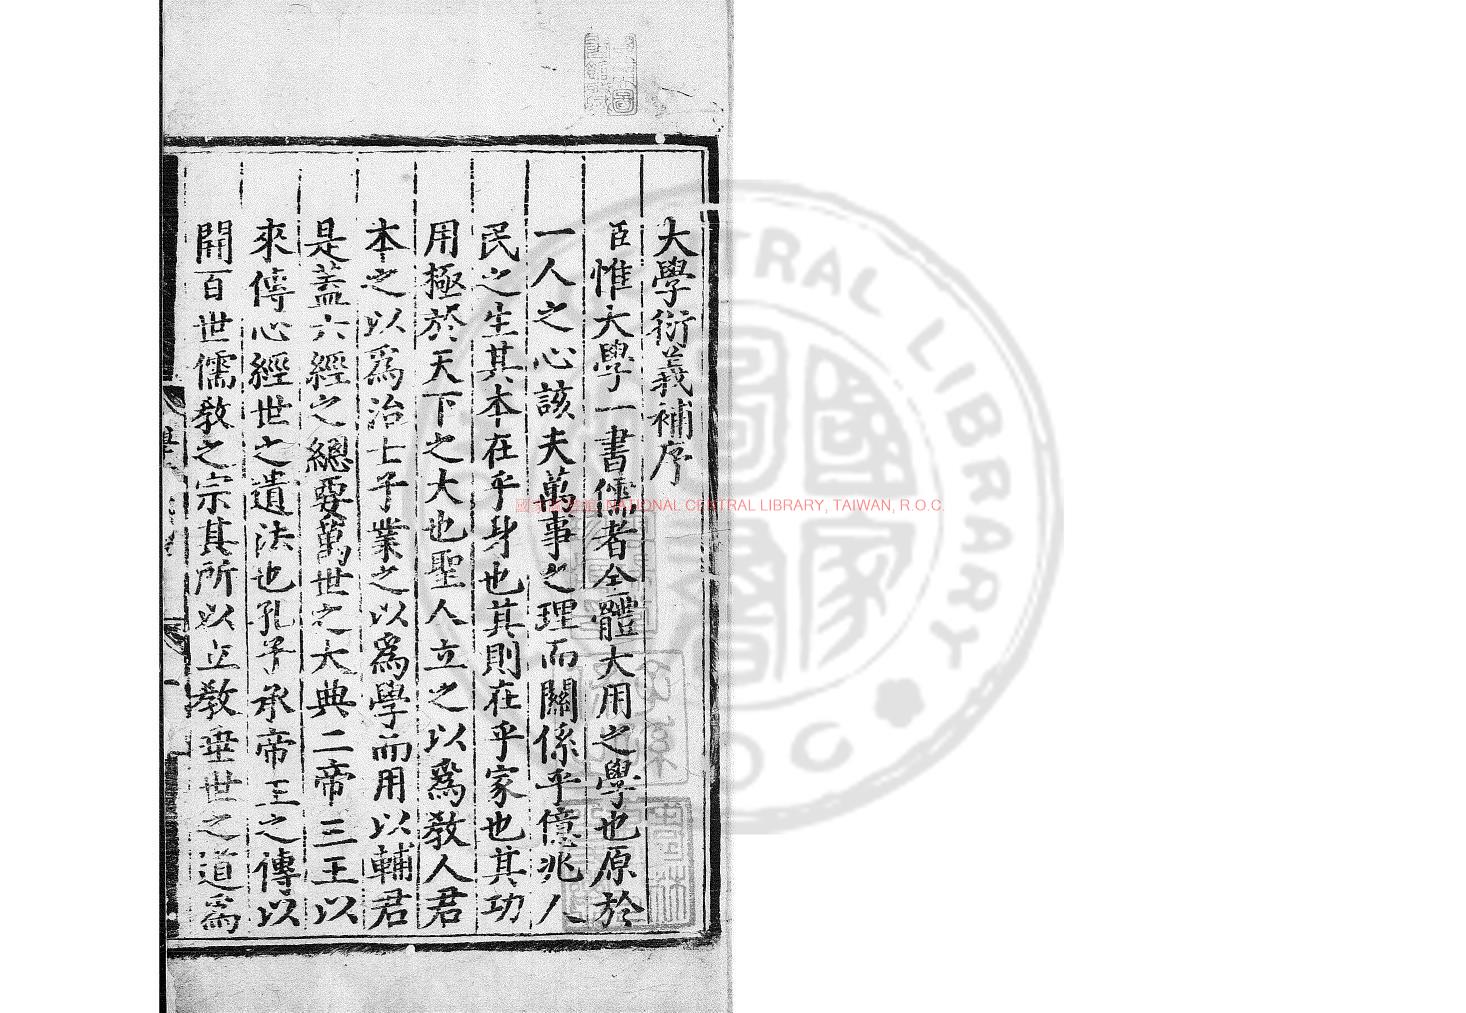 大學衍義補序
臣惟大學一書儒者全體大用之學也原於
一人之心該夫萬事之理而關係乎億兆人
民之生其本在乎身也其則在乎家也其功
用極於天下之大也聖人立之以爲教人君
本之以爲治士子業之以爲學而用以輔君
是蓋六經之總要萬世之大典二帝三王以
來傳心經世之遺法也孔子承帝王之傳以
開百世儒教之宗其所以立教垂世之道爲
NATIONAL CENTRAL LIBRARY, TAIWAN, R.O.C.
CENTRAL LIBRARY